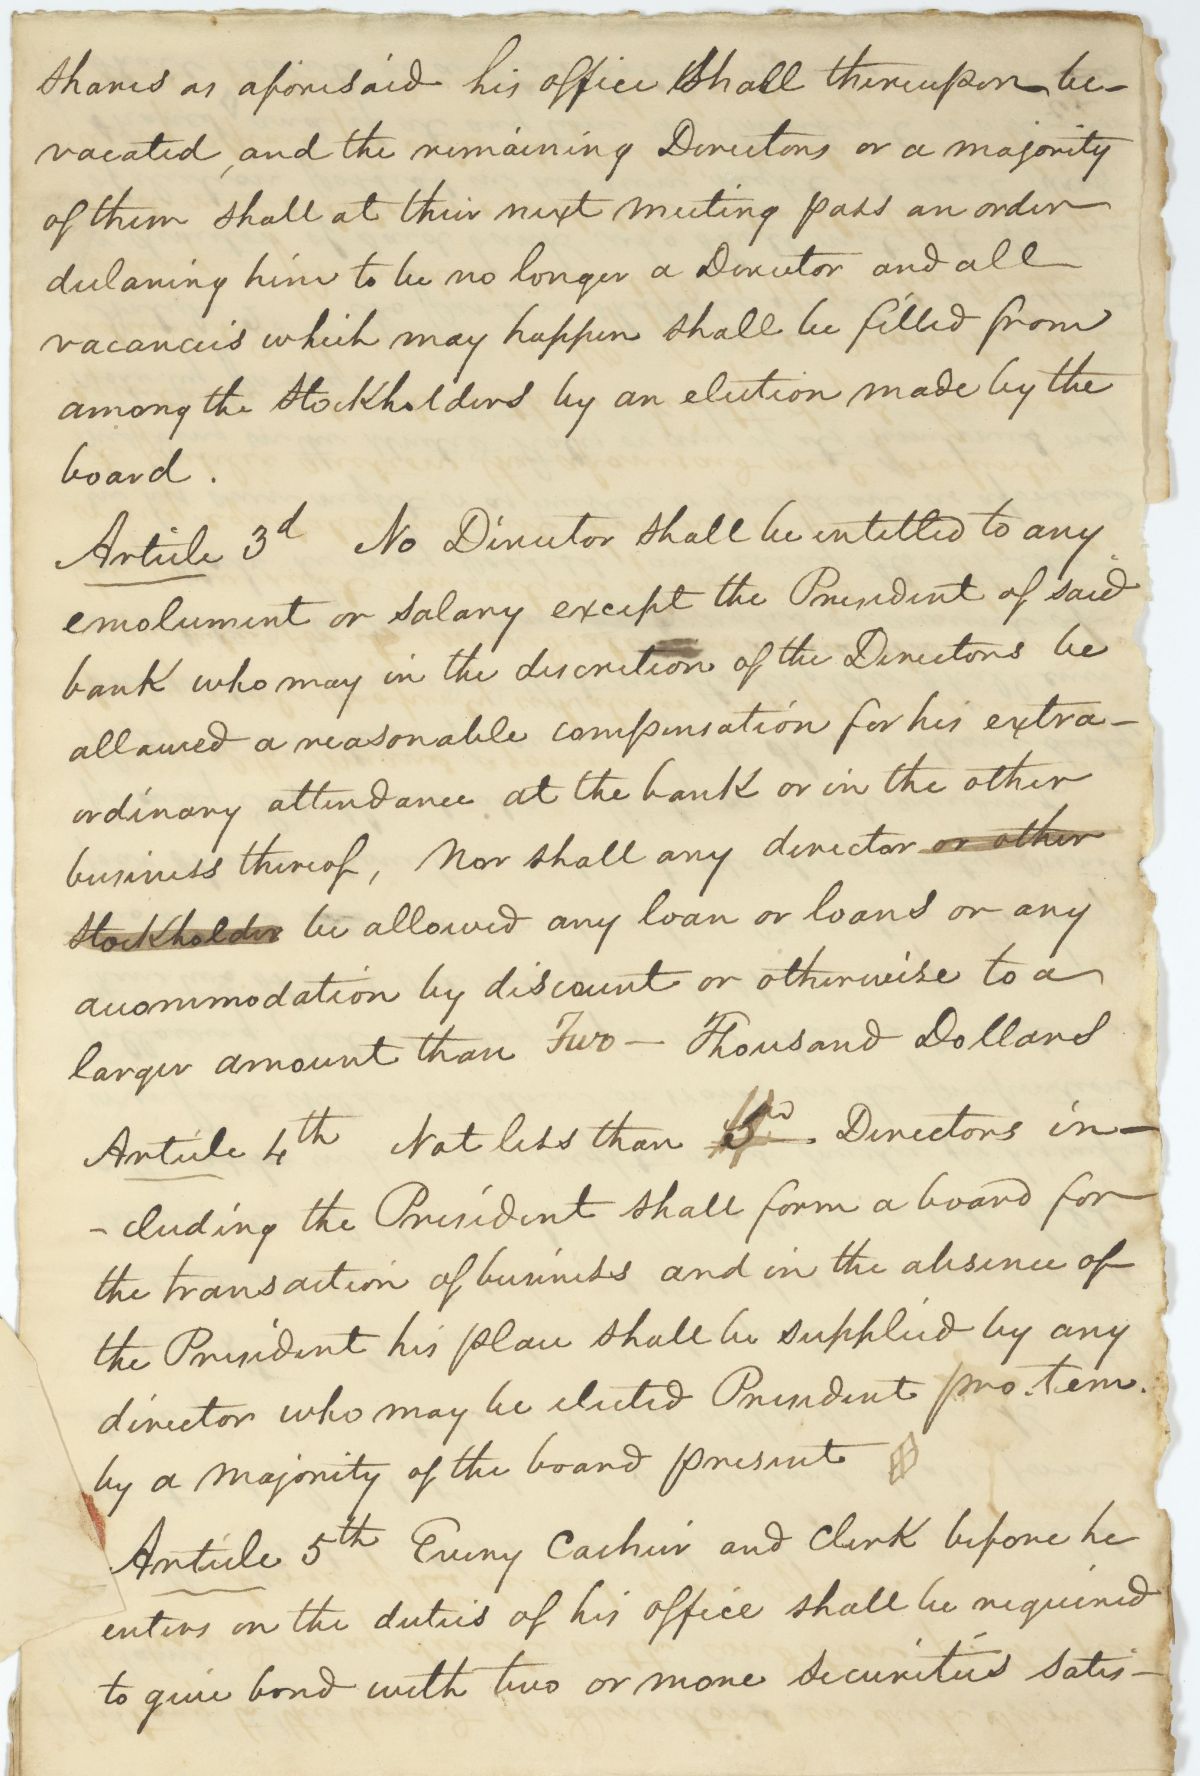 shares as aforesaid his office shall thereupon be-
vacated, and the remaining Directors or a majority
of them shall at their next meeting pass an order
declaring him to be no longer a Director and all
vacancies which may happen shall be filled from
among the Stockholders by an election made by the
board.
Article 3d No Director shall be entitled to any
emolument or salary except the President of said
bank who may in the discretion of the Directors be
allowed a reasonable compensation for his extra-
ordinary attendance at the bank or in the other
business thereof, Nor shall any director or other
Stockholder be allowed any loan or loans or any
accommodation by discount or otherwise to a
larger amount than Two - Thousand Dollars
Article 4th Not less than Directors in-
-cluding the President shall form a board for
the transaction of business and in the absence of
the President his place shall be supplied by any
director who may be elected President pro. tem.
by a majority of the board present
Article 5th Every Cashier and Clerk before he
enters on the duties of his office shall be required
to give bond with two or more securities satis-